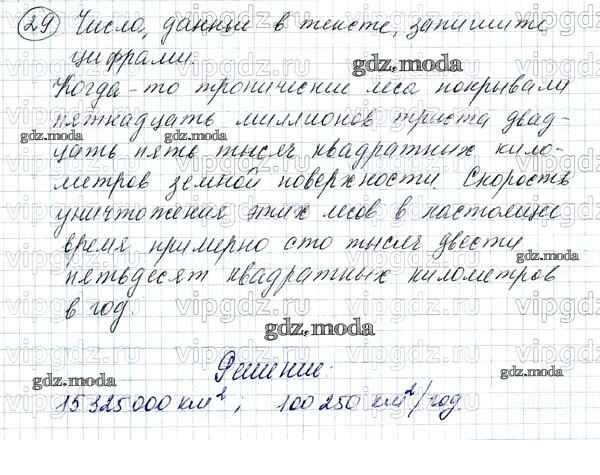 29 Число, данные в тексте, запишите
цифрами.
Когда-то тропические леса покрывали
пятнадцать миллионов триста двад-
цать пять тысяч квадратных кило-
метров земной поверхности. Скорость
уничтожения этих лесов в настоящие
время примерно сто тысяч двести
пятьдесят квадратных километров
в год.
Решение.
15325000 км²; 100250 км²/год.
gdz.moda
gdz.moda
gdz.moda
gdz.moda
gdz.moda
gdz.moda
gdz.moda
gdz.moda
vipgdz.ru